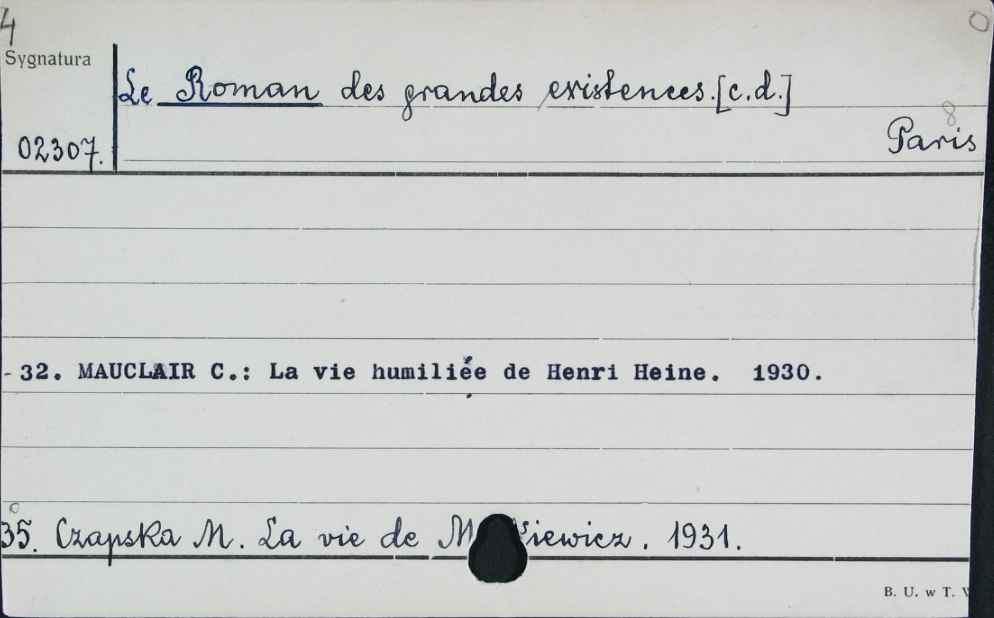 4
Sygnatura
Le Roman des grandes existences.[c.d.]
8
02307.
Paris
- 32. MAUCLAIR C.: La vie humiliée de Henri Heine. 1930.
35. Czapska M. La vie de 1931.
B. U. w T.